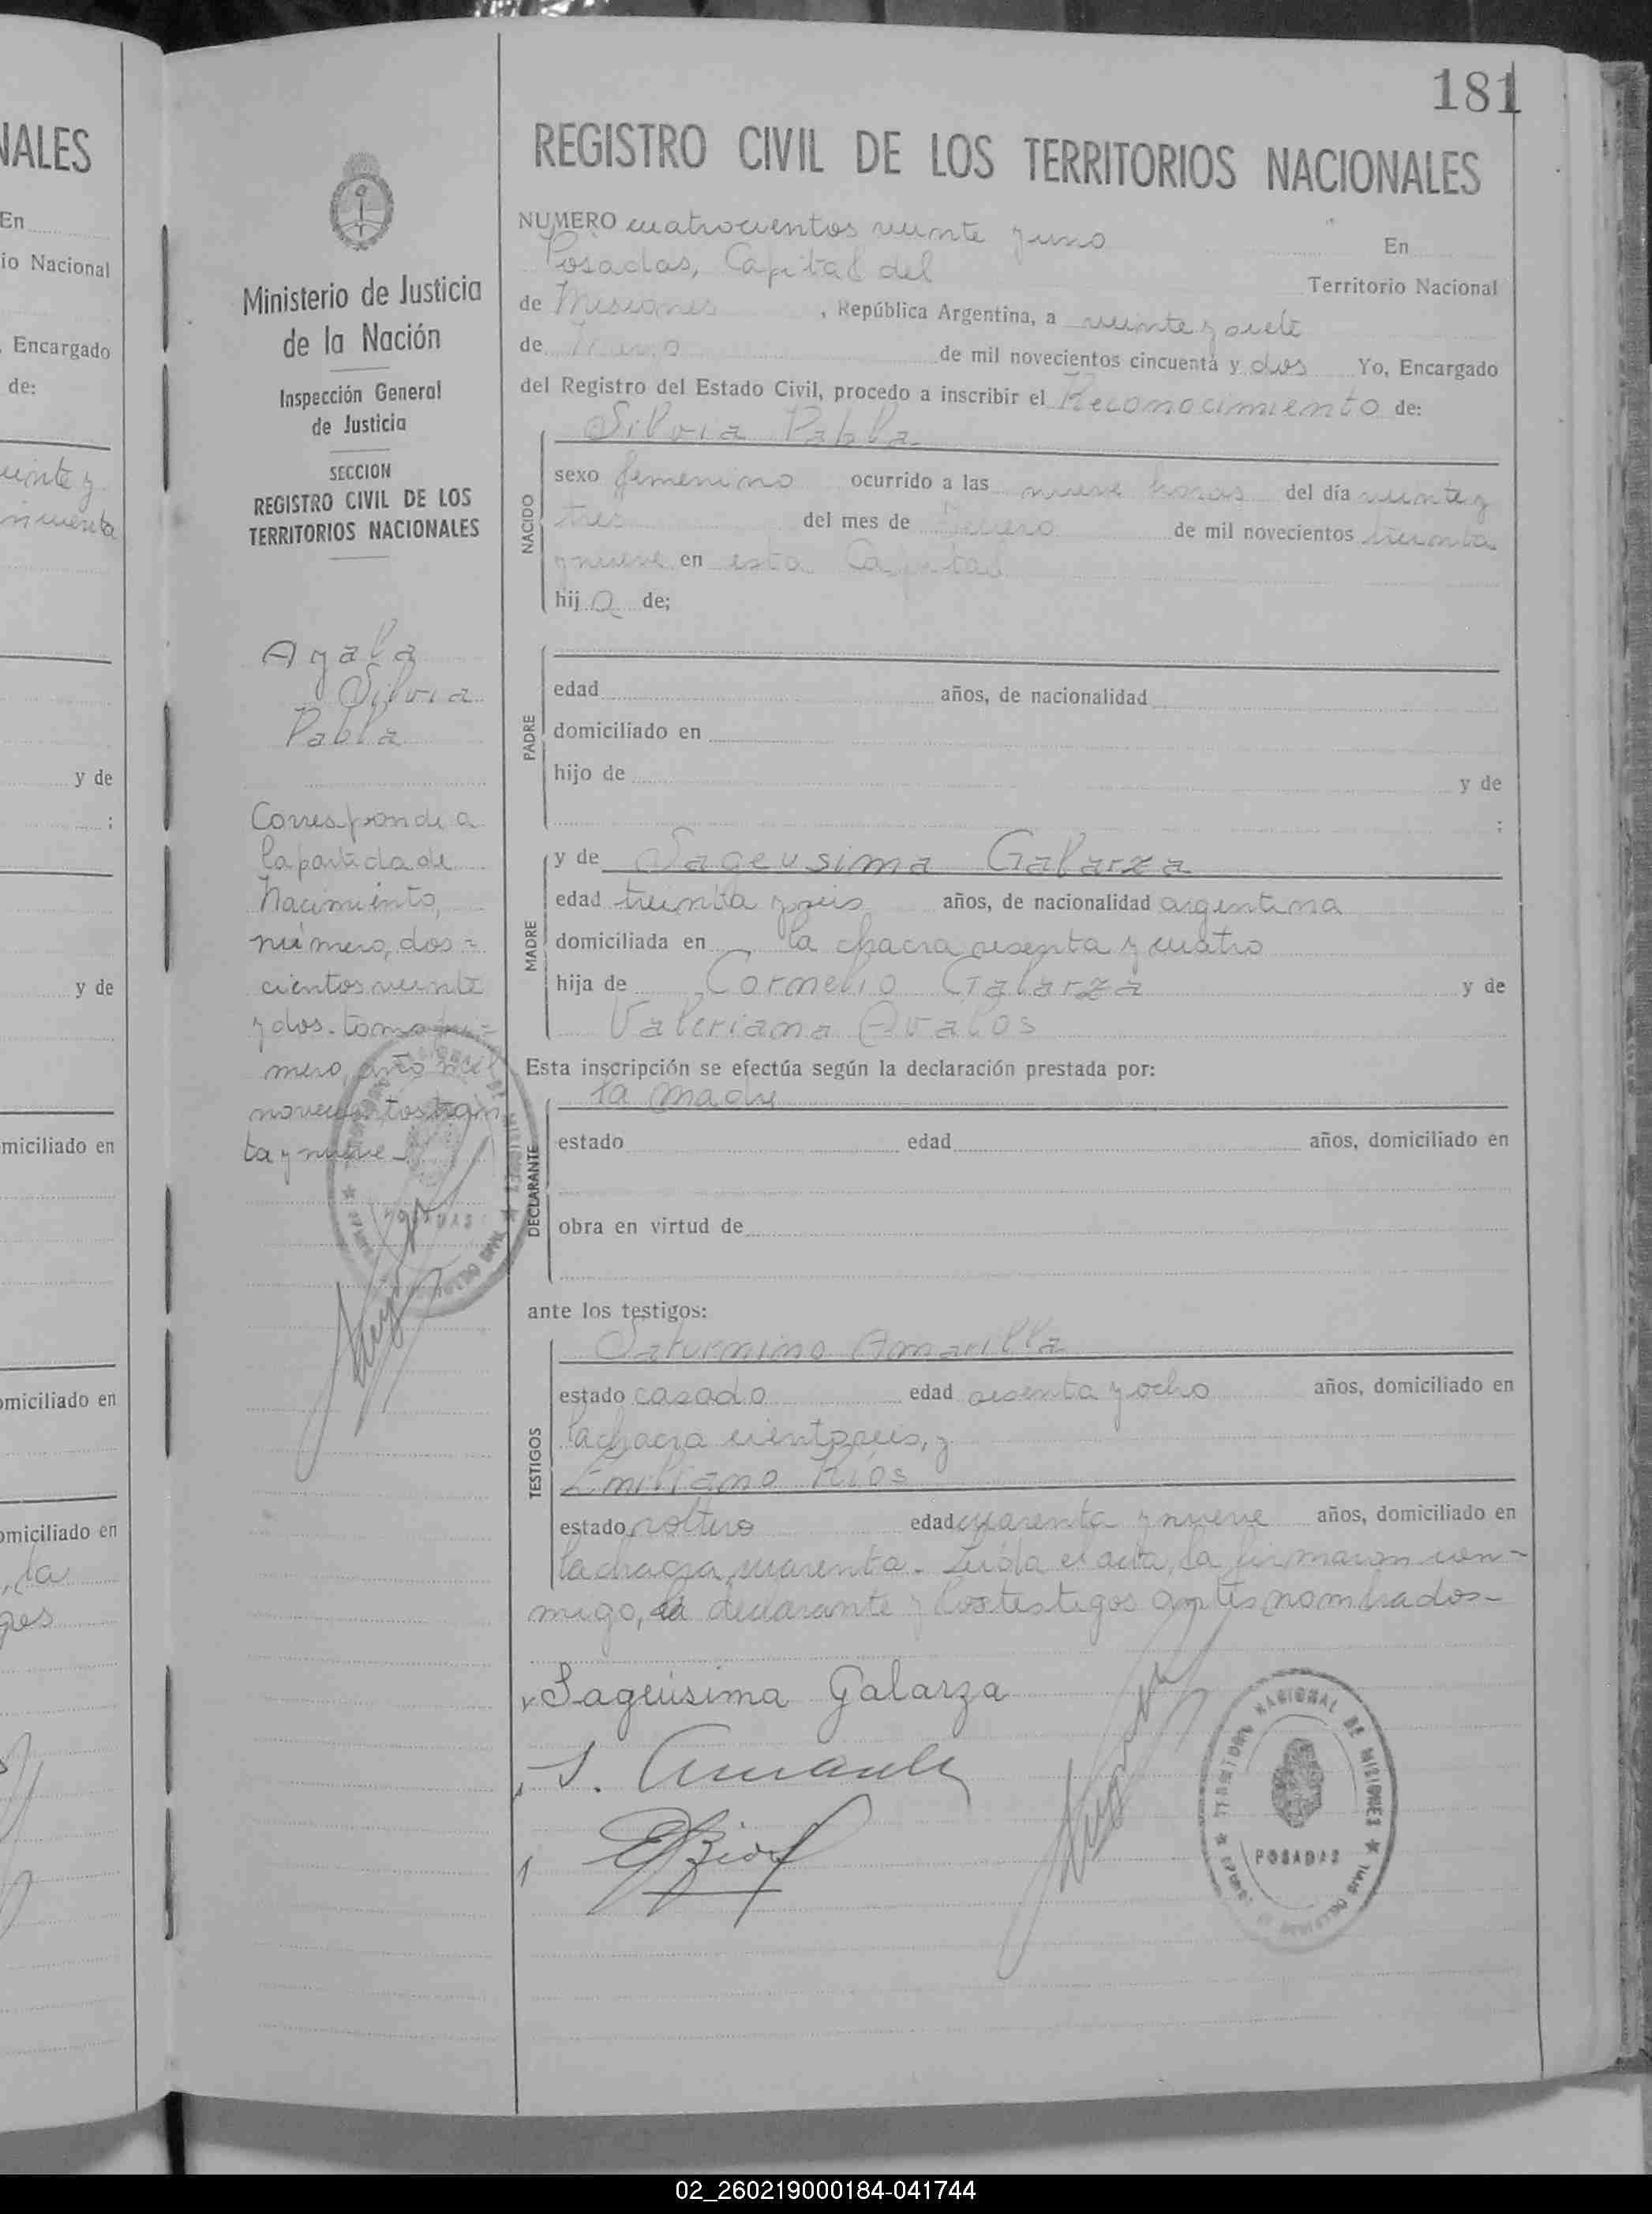 181
REGISTRO CIVIL DE LOS TERRITORIOS NACIONALES
NUMERO cuatrocientos veinte y uno En
Posadas, Capital del Territorio Nacional
de Misiones, República Argentina, a veinte y siete
de de mil novecientos cincuenta y dos Yo, Encargado
del Registro del Estado Civil, procedo a inscribir el Reconocimiento de:
Silvia Pabla
NACIDO
sexo femenino ocurrido a las nueve horas del día veinte y
tres del mes de de mil novecientos treinta
y nueve en esta Capital
hija de;
PADRE
edad años, de nacionalidad
domiciliado en
hijo de y de
;
MADRE
y de Sageusima Galarza
edad treinta y seis años, de nacionalidad argentina
domiciliada en la chacra sesenta y cuatro
hija de Cornelio Galarza y de
Valeriana Avalos
Esta inscripción se efectúa según la declaración prestada por:
la madre
DECLARANTE
estado edad años, domiciliado en
obra en virtud de
ante los testigos:
TESTIGOS
Saturnino Amarilla
estado casado edad sesenta y ocho años, domiciliado en
la chacra ciento seis, y
Emiliano Rios
estado soltero edad cuarenta y nueve años, domiciliado en
la chacra cuarenta. Leída el acta, la firmaron con-
migo, la declarante y los testigos antes nombrados-
Sageüsima Galarza
S. Amarilla
ERios
TERRITORIO NACIONAL DE MISIONES
POSADAS
Ministerio de Justicia
de la Nación
Inspección General
de Justicia
SECCION
REGISTRO CIVIL DE LOS
TERRITORIOS NACIONALES
Ayala
Silvia
Pabla
Corresponde a
la partida de
Nacimiento,
número, dos-
cientos veinte
y dos. tomo pri-
mero, año mil
novecientos trein
ta y nueve-
POSADAS
NALES
En
io Nacional
, Encargado
de:
veinte y
incuenta
y de
:
y de
miciliado en
omiciliado en
omiciliado en
, la
gos
02_260219000184-041744